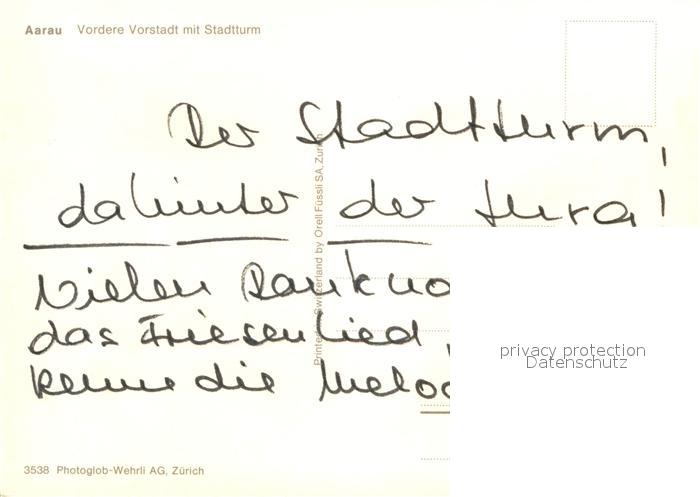 Aarau Vordere Vorstadt mit Stadtturm
Der Stadtturm,
dahinter der Jura!
Vielen Dank no
das Friesenlied,
kenne die Melod
Printed in Switzerland by Orell Füssli SA, Zürich
privacy protection
Datenschutz
3538 Photoglob-Wehrli AG, Zürich